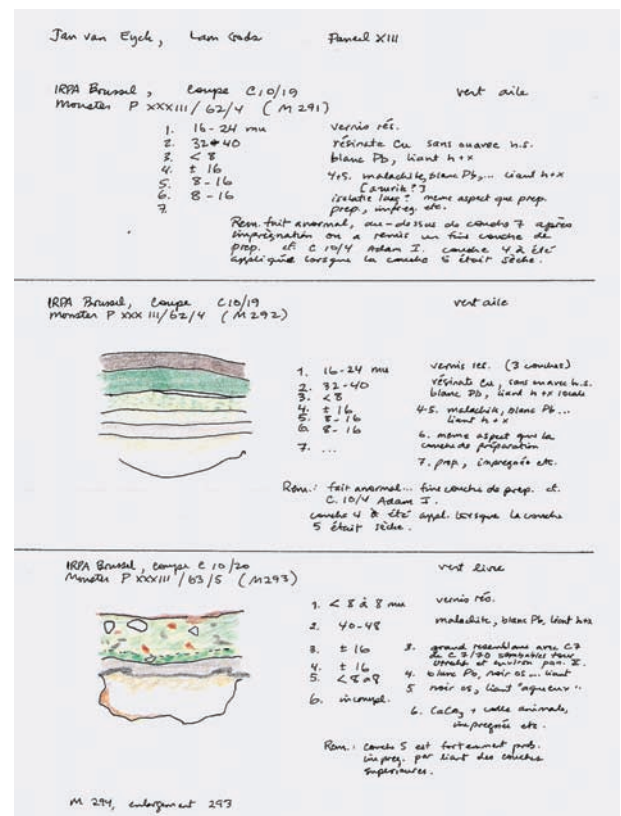 Jan van Eyck, Lam Gods Paneel XIII
IRPA Brussel, coupe C10/19 vert aile
Monster P XXXIII/62/4 (M291)
1. 16-24 mu vernis rés.
2. 32-40 résinate Cu sans ou avec h.s.
3. < 8 blanc Pb, liant h+x
4. ± 16 4+5. malachite, blanc Pb,... liant h+x
5. 8-16 [azurite?]
6. 8-16 isolatie laag? meme aspect que prep.
7. prep., impreg. etc.
Rem. fait anormal, au-dessus de couche 7 après
imprégnation on a remis un fine couche de
prep. cf. C 10/4 Adam I. couche 4 a été
appliquée lorsque la couche 5 était sèche.
IRPA Brussel, coupe C10/19 vert aile
Monster P XXXIII/62/4 (M292)
1. 16-24 mu vernis res. (3 couches)
2. 32-40 résinate Cu, sans ou avec h.s.
3. < 8 blanc Pb, liant h+x locale
4. ± 16 4-5. malachite, blanc Pb...
5. 8-16 liant h+x
6. 8-16 6. meme aspect que la
couche de préparation
7. ... 7. prep., impregnée etc.
Rem.: fait anormal... fine couche de prep. cf.
C.10/4 Adam I.
couche 4 a été appl. lorsque la couche
5 était sèche.
IRPA Brussel, coupe C 10/20 vert livre
Monster P XXXIII/63/5 (M293)
1. < 8 à 8 mu vernis rés.
2. 40-48 malachite, blanc Pb, liant h+x
3. ± 16 3. grand resemblans avec C7
de C7/70 semblables tour
Utrecht et environ pan. X.
4. ± 16 4. blanc Pb, noir os... liant
5. < 8 a 8 5 noir os, liant "aqueux"
6. incompl. 6. CaCO3 + colle animale,
impregnée etc.
Rem.: couche 5 est fortement prob.
impreg. par liant des couches
superieures.
M 294, enlargement 293